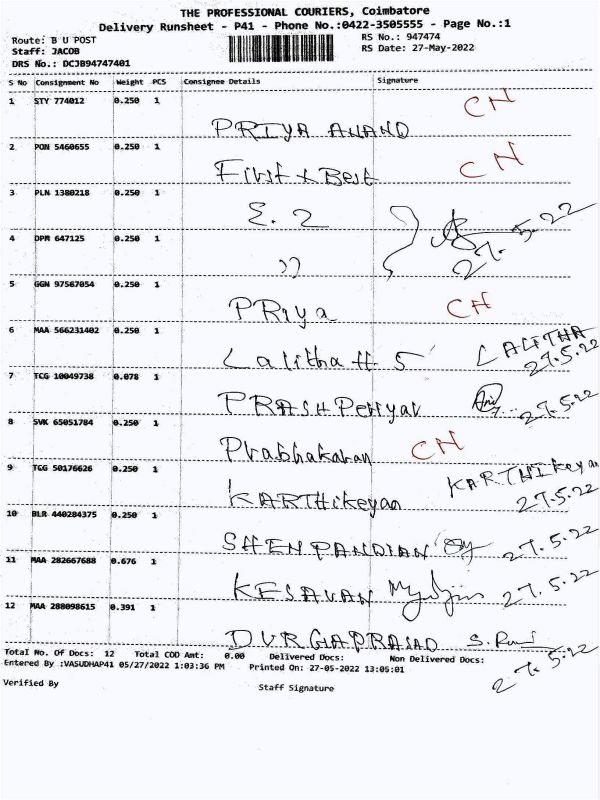 THE PROFESSIONAL COURIERS, Coimbatore
Delivery Runsheet - P41 - Phone No.:0422-3505555 - Page No.:1
Route: B U POST RS No.: 947474
Staff: JACOB RS Date: 27-May-2022
DRS No.: DCJB94747401
S No Consignment No Weight PCS Consignee Details Signature
1 STY 774012 0.250 1 CN
PRIYA ANAND
2 PON 5460655 0.250 1 CN
First & Best
3 PLN 1380218 0.250 1
E. 2 27.5.22
4 DPM 647125 0.250 1
))
5 GGN 97567054 0.250 1 CN
PRiya
6 MAA 566231402 0.250 1 LALITHA
Lalitha H 5 27.5.22
7 TCG 10049738 0.078 1
PRASH Periyar 27.5.22
8 SVK 65051784 0.250 1 CN
Prabhakaran
9 TCG 50176626 0.250 1 KARTHIKeyan
KARTHikeyan 27.5.22
10 BLR 440284375 0.250 1
SHEN PANDIAN 27.5.22
11 MAA 282667688 0.676 1
KESAVAN 27.5.22
12 MAA 288098615 0.391 1
DURGAPRASAD 27.5.22
Total No. Of Docs: 12 Total COD Amt: 0.00 Delivered Docs: Non Delivered Docs:
Entered By :VASUDHAP41 05/27/2022 1:03:36 PM Printed On: 27-05-2022 13:05:01
Verified By Staff Signature